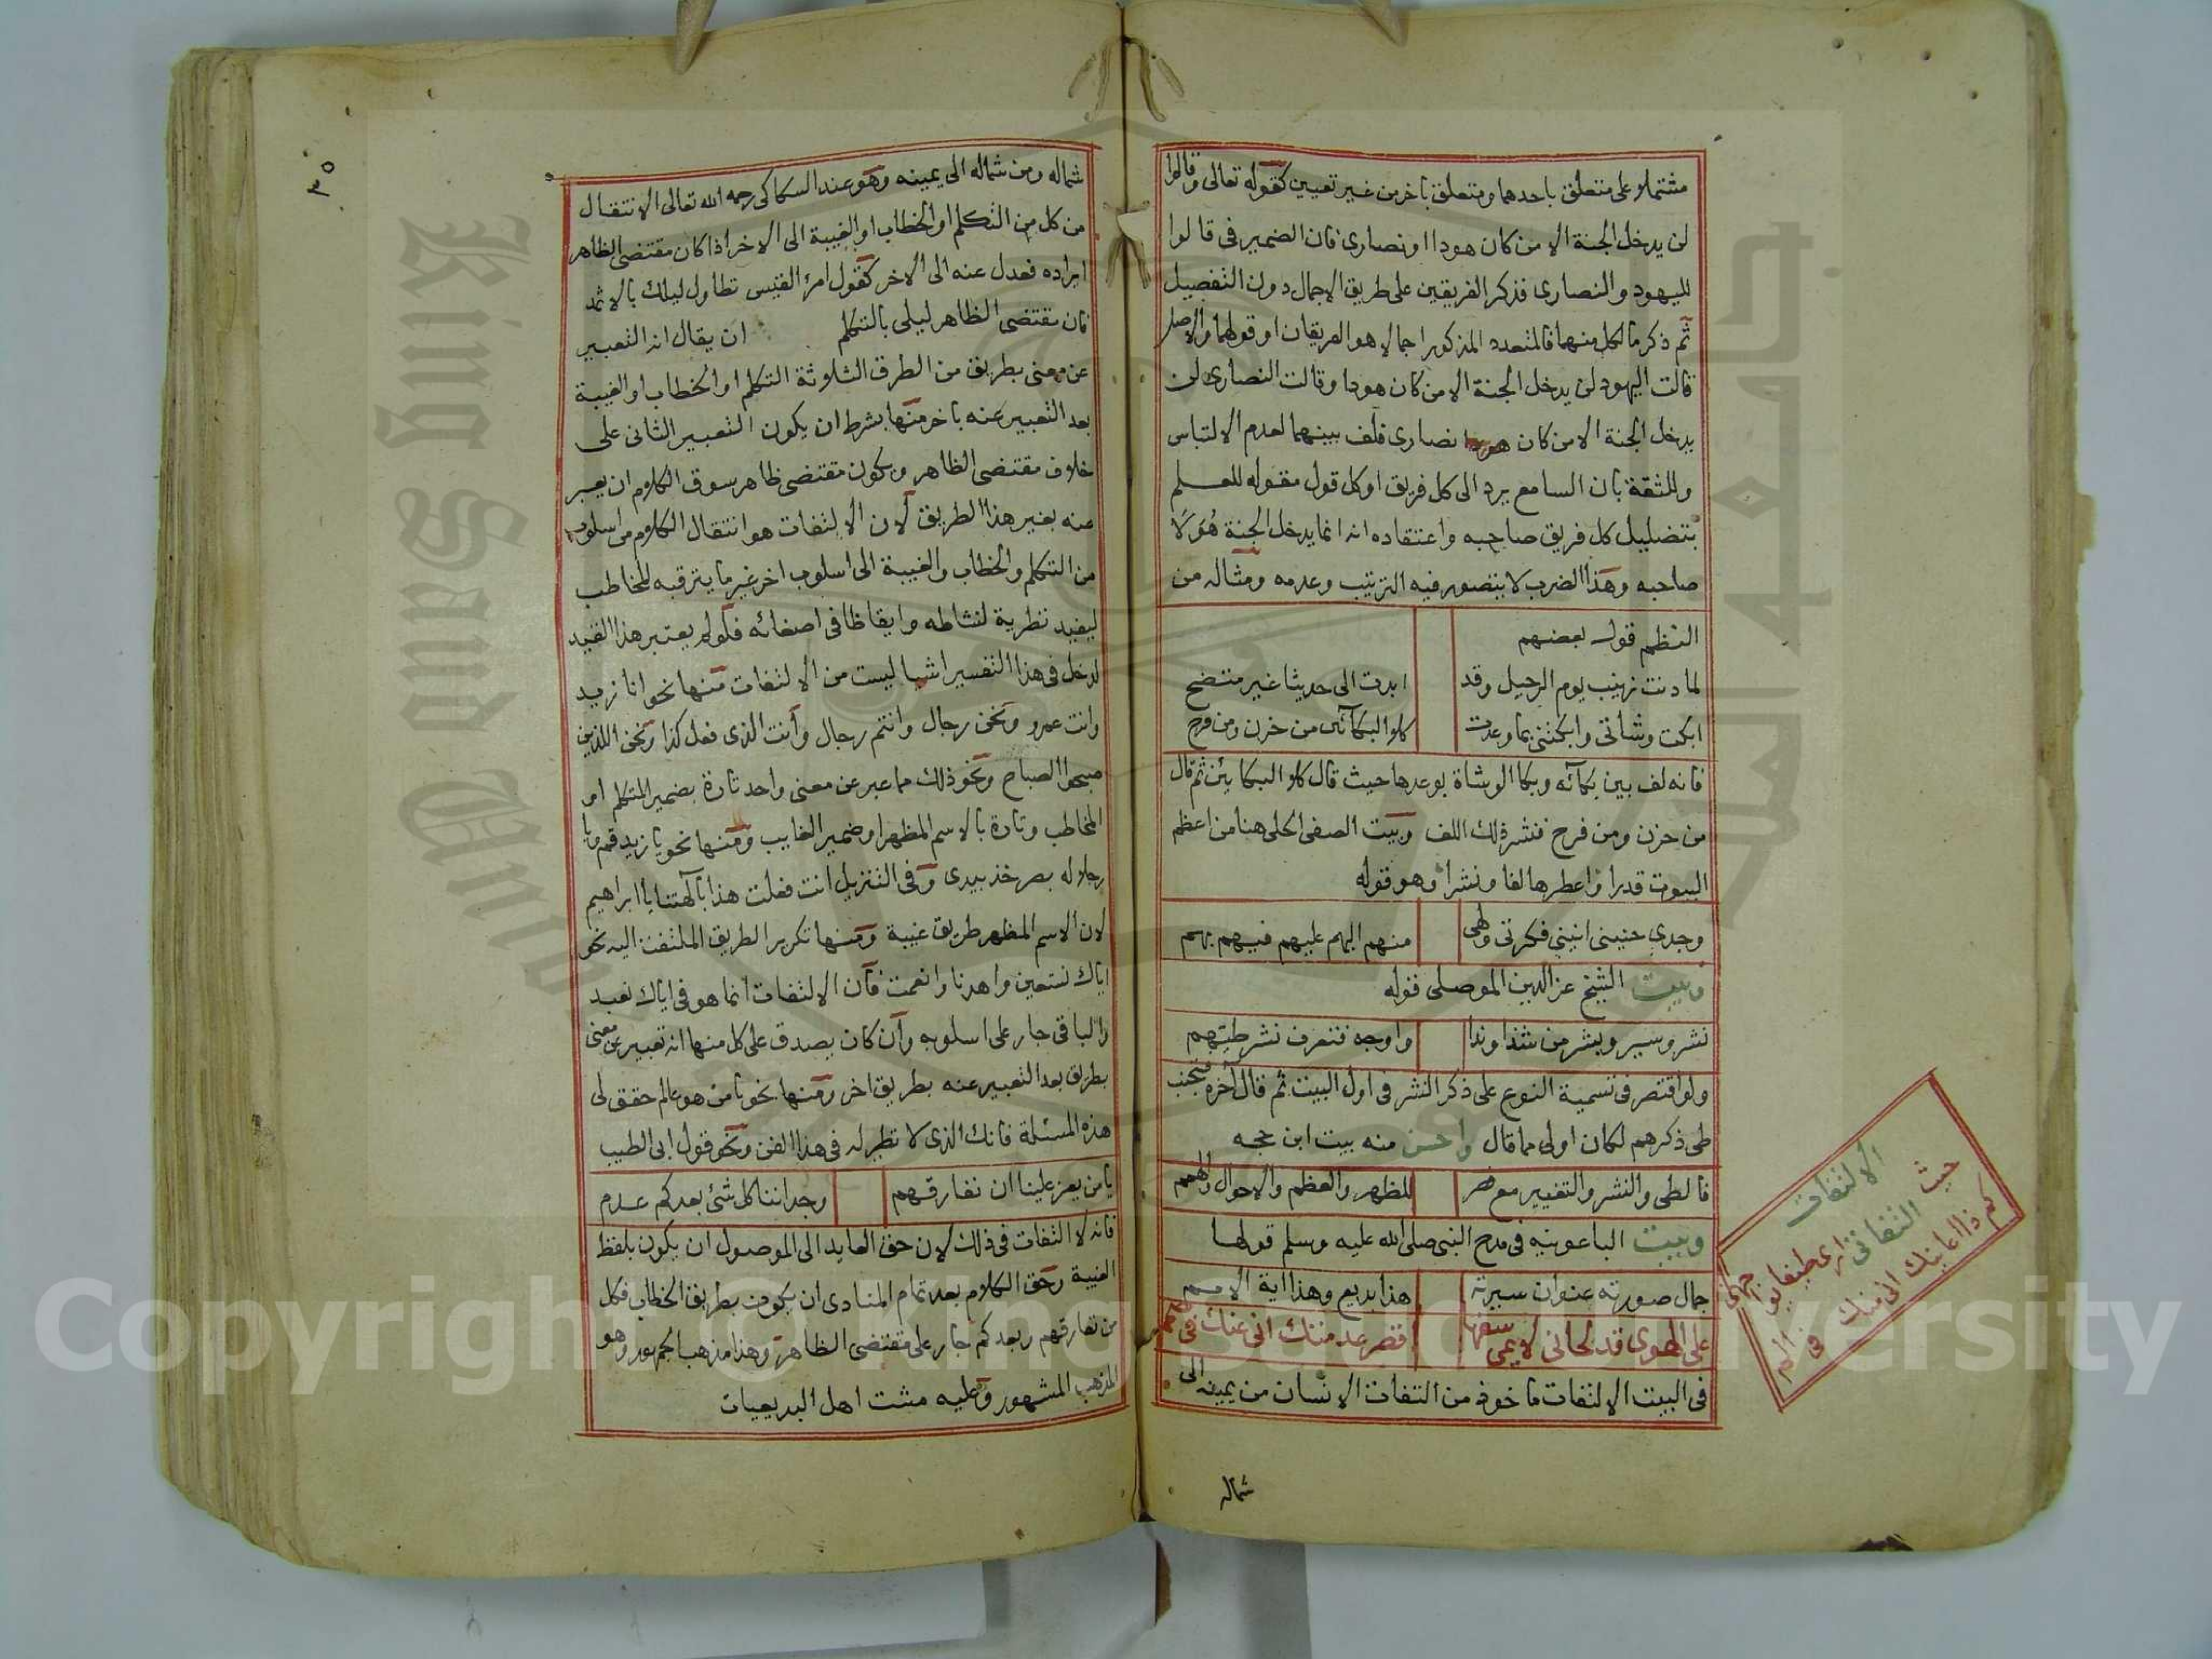 مشتملا على متعلق باحدهما ومتعلق باخر من غير تعيين كقوله تعالى وقالوا
لن يدخل الجنة الا من كان هودا او نصارى فان الضمير في قالوا
لليهود والنصارى فذكر الفريقين على طريق الاجمال دون التفصيل
ثم ذكر ما لكل منهما فالمتعدد المذكور اجمالا هو الفريقان او قولهما والاصل
قالت اليهود لن يدخل الجنة الا من كان هودا وقالت النصارى لن
يدخل الجنة الا من كان نصارى فلف بينهما لعدم الالتباس
وللثقة بان السامع يرد الى كل فريق او كل قول مقوله للعلم
بتضليل كل فريق صاحبه واعتقاده انه انما يدخل الجنة هو لا
صاحبه وهذا الضرب لا يتصور فيه الترتيب وعدمه ومثاله من
النظم قول بعضهم
لما دنت زينب يوم الرحيل وقد ابدت الى حديثا غير متضح
ابكت وشاتى وابكتني بما وعدت كلا البكائين من حزن ومن فرح
فانه لف بين بكائه وبكا الوشاة بوعدها حيث قال كلا البكائين ثم قال
من حزن ومن فرح فنشر ذلك اللف وبيت الصفي الحلى هنا من اعظم
البيوت قدرا واعطرها لفا ونشرا وهو قوله
وجدي حنيني انيني فكرتي ولهي منهم اليهم عليهم فيهم بهم
وبيت الشيخ عز الدين الموصلى قوله
نشر وسير وبشر من شذا وندا واوجه فتعرف نشر طيهم
ولو اقتصر في تسمية النوع على ذكر النشر في اول البيت ثم قال آخره
طى ذكرهم لكان اولى مما قال واحسن منه بيت ابن حجه
فالطى والنشر والتغيير مع قصر للظهر والعظم والاحوال والهمم
وبيت الباعونيه في مدح النبي صلى الله عليه وسلم قولها
جمال صورته عنوان سيرته هذا بديع وهذا اية الامم
على الهوى قد لحانى لايمى سفها اقصر عدمتك انى عنك فى صمم
في البيت الالتفات ماخوذ من التفات الانسان من يمينه الى
شماله
الالتفات
حيث التفاتى
٣٥
شماله ومن شماله الى يمينه وهو عند السكاكى رحمه الله تعالى الانتقال
من كل من التكلم او الخطاب او الغيبة الى الاخر اذا كان مقتضى الظاهر
ايراده فعدل عنه الى الاخر كقول امرؤ القيس تطاول ليلك بالاثمد
فان مقتضى الظاهر ليلى بالتكلم ان يقال انه التعبير
عن معنى بطريق من الطرق الثلاثة التكلم او الخطاب او الغيبة
بعد التعبير عنه باخر منها بشرط ان يكون التعبير الثانى على
خلاف مقتضى الظاهر ويكون مقتضى ظاهر سوق الكلام ان يعبر
عنه بغير هذا الطريق لان الالتفات هو انتقال الكلام من اسلوب
من التكلم والخطاب والغيبة الى اسلوب اخر غير ما يترقبه المخاطب
ليفيد تطرية لنشاطه وايقاظا في اصغائه فلو لم يعتبر هذا القيد
لدخل في هذا التفسير اشيا ليست من الالتفات منها نحو انا زيد
وانت عمرو ونحن رجال وانتم رجال وانت الذي فعل كذا ونحن اللذين
صبحوا الصباح ونحو ذلك مما عبر عن معنى واحد تارة بضمير المتكلم او
المخاطب وتارة بالاسم المظهر او ضمير الغايب ومنها نحو يا زيد قم ويا
رجلا له بصر خذ بيدى وفى التنزيل انت فعلت هذا بآلهتنا يا ابراهيم
لان الاسم المظهر طريق غيبة ومنها تكرير الطريق الملتفت اليه نحو
اياك نستعين واهدنا وانعمت فان الالتفات انما هو في اياك نعبد
والباقى جار على اسلوبه وان كان يصدق على كل منها انه تعبير عن معنى
بطريق بعد التعبير عنه بطريق اخر ومنها نحو يا من هو عالم حقق لى
هذه المسئلة فانك الذى لا نظير له في هذا الفن ونحو قول ابى الطيب
يا من يعز علينا ان نفارقهم وجداننا كل شئ بعدكم عدم
فانه لا التفات في ذلك لان حق العايد الى الموصول ان يكون بلفظ
الغيبة وحق الكلام بعد تمام المنادى ان يكون بطريق الخطاب فكل
من نفارقهم وبعدكم جار على مقتضى الظاهر وهذا مذهب الجمهور وهو
المذهب المشهور وعليه مشت اهل البديعيات
Copyright © King Saud University